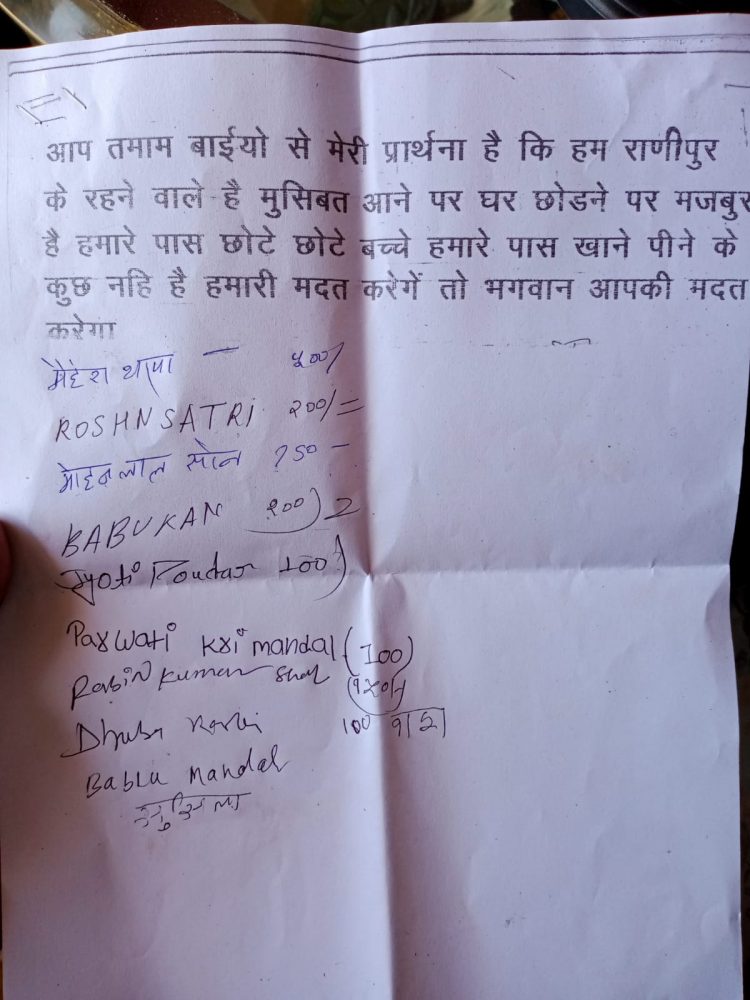 आप तमाम बाईयो से मेरी प्रार्थना है कि हम राणीपुर
के रहने वाले है मुसिबत आने पर घर छोडने पर मजबुर
है हमारे पास छोटे छोटे बच्चे हमारे पास खाने पीने के
कुछ नहि है हमारी मदत करेगें तो भगवान आपकी मदत
करेगा
थापा — ५००/
ROSHNSATRI २००/=
मोहनलाल सोन
BABUKAN २००)2
Jyoti 100/
Parwati kri mandal (100)
Rabin kumar shah
100
Bablu Mandal